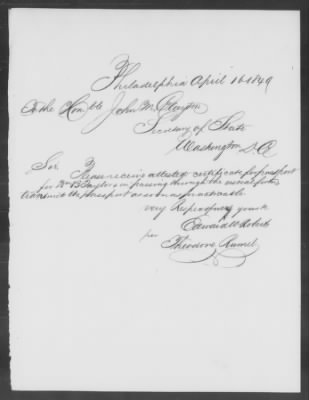 Philadelphia April 16 1849
To the Honble John M. Clayton
Secretary of State
Washington D.C.
Sir Please receive attested certificate for passport
for Wm B. in passing through the usual
transmit the passport as soon as practicable
very Respectfully yours
Edward Roberts
per
Theodore